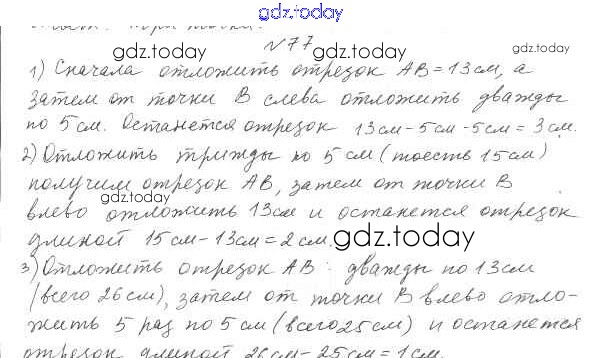 gdz.today
N 77
gdz.today
gdz.today
1) Сначала отложить отрезок AB = 13 см, а
затем от точки B слева отложить дважды
по 5 см. Останется отрезок 13 см - 5 см - 5 см = 3 см.
2) Отложить трижды по 5 см (тоесть 15 см)
получим отрезок AB, затем от точки B
gdz.today
влево отложить 13 см и останется отрезок
длиной 15 см - 13 см = 2 см.
gdz.today
3) Отложить отрезок AB: дважды по 13 см
(всего 26 см), затем от точки B влево отло-
жить 5 раз по 5 см (всего 25 см) и останется
отрезок длиной 26 см - 25 см = 1 см.